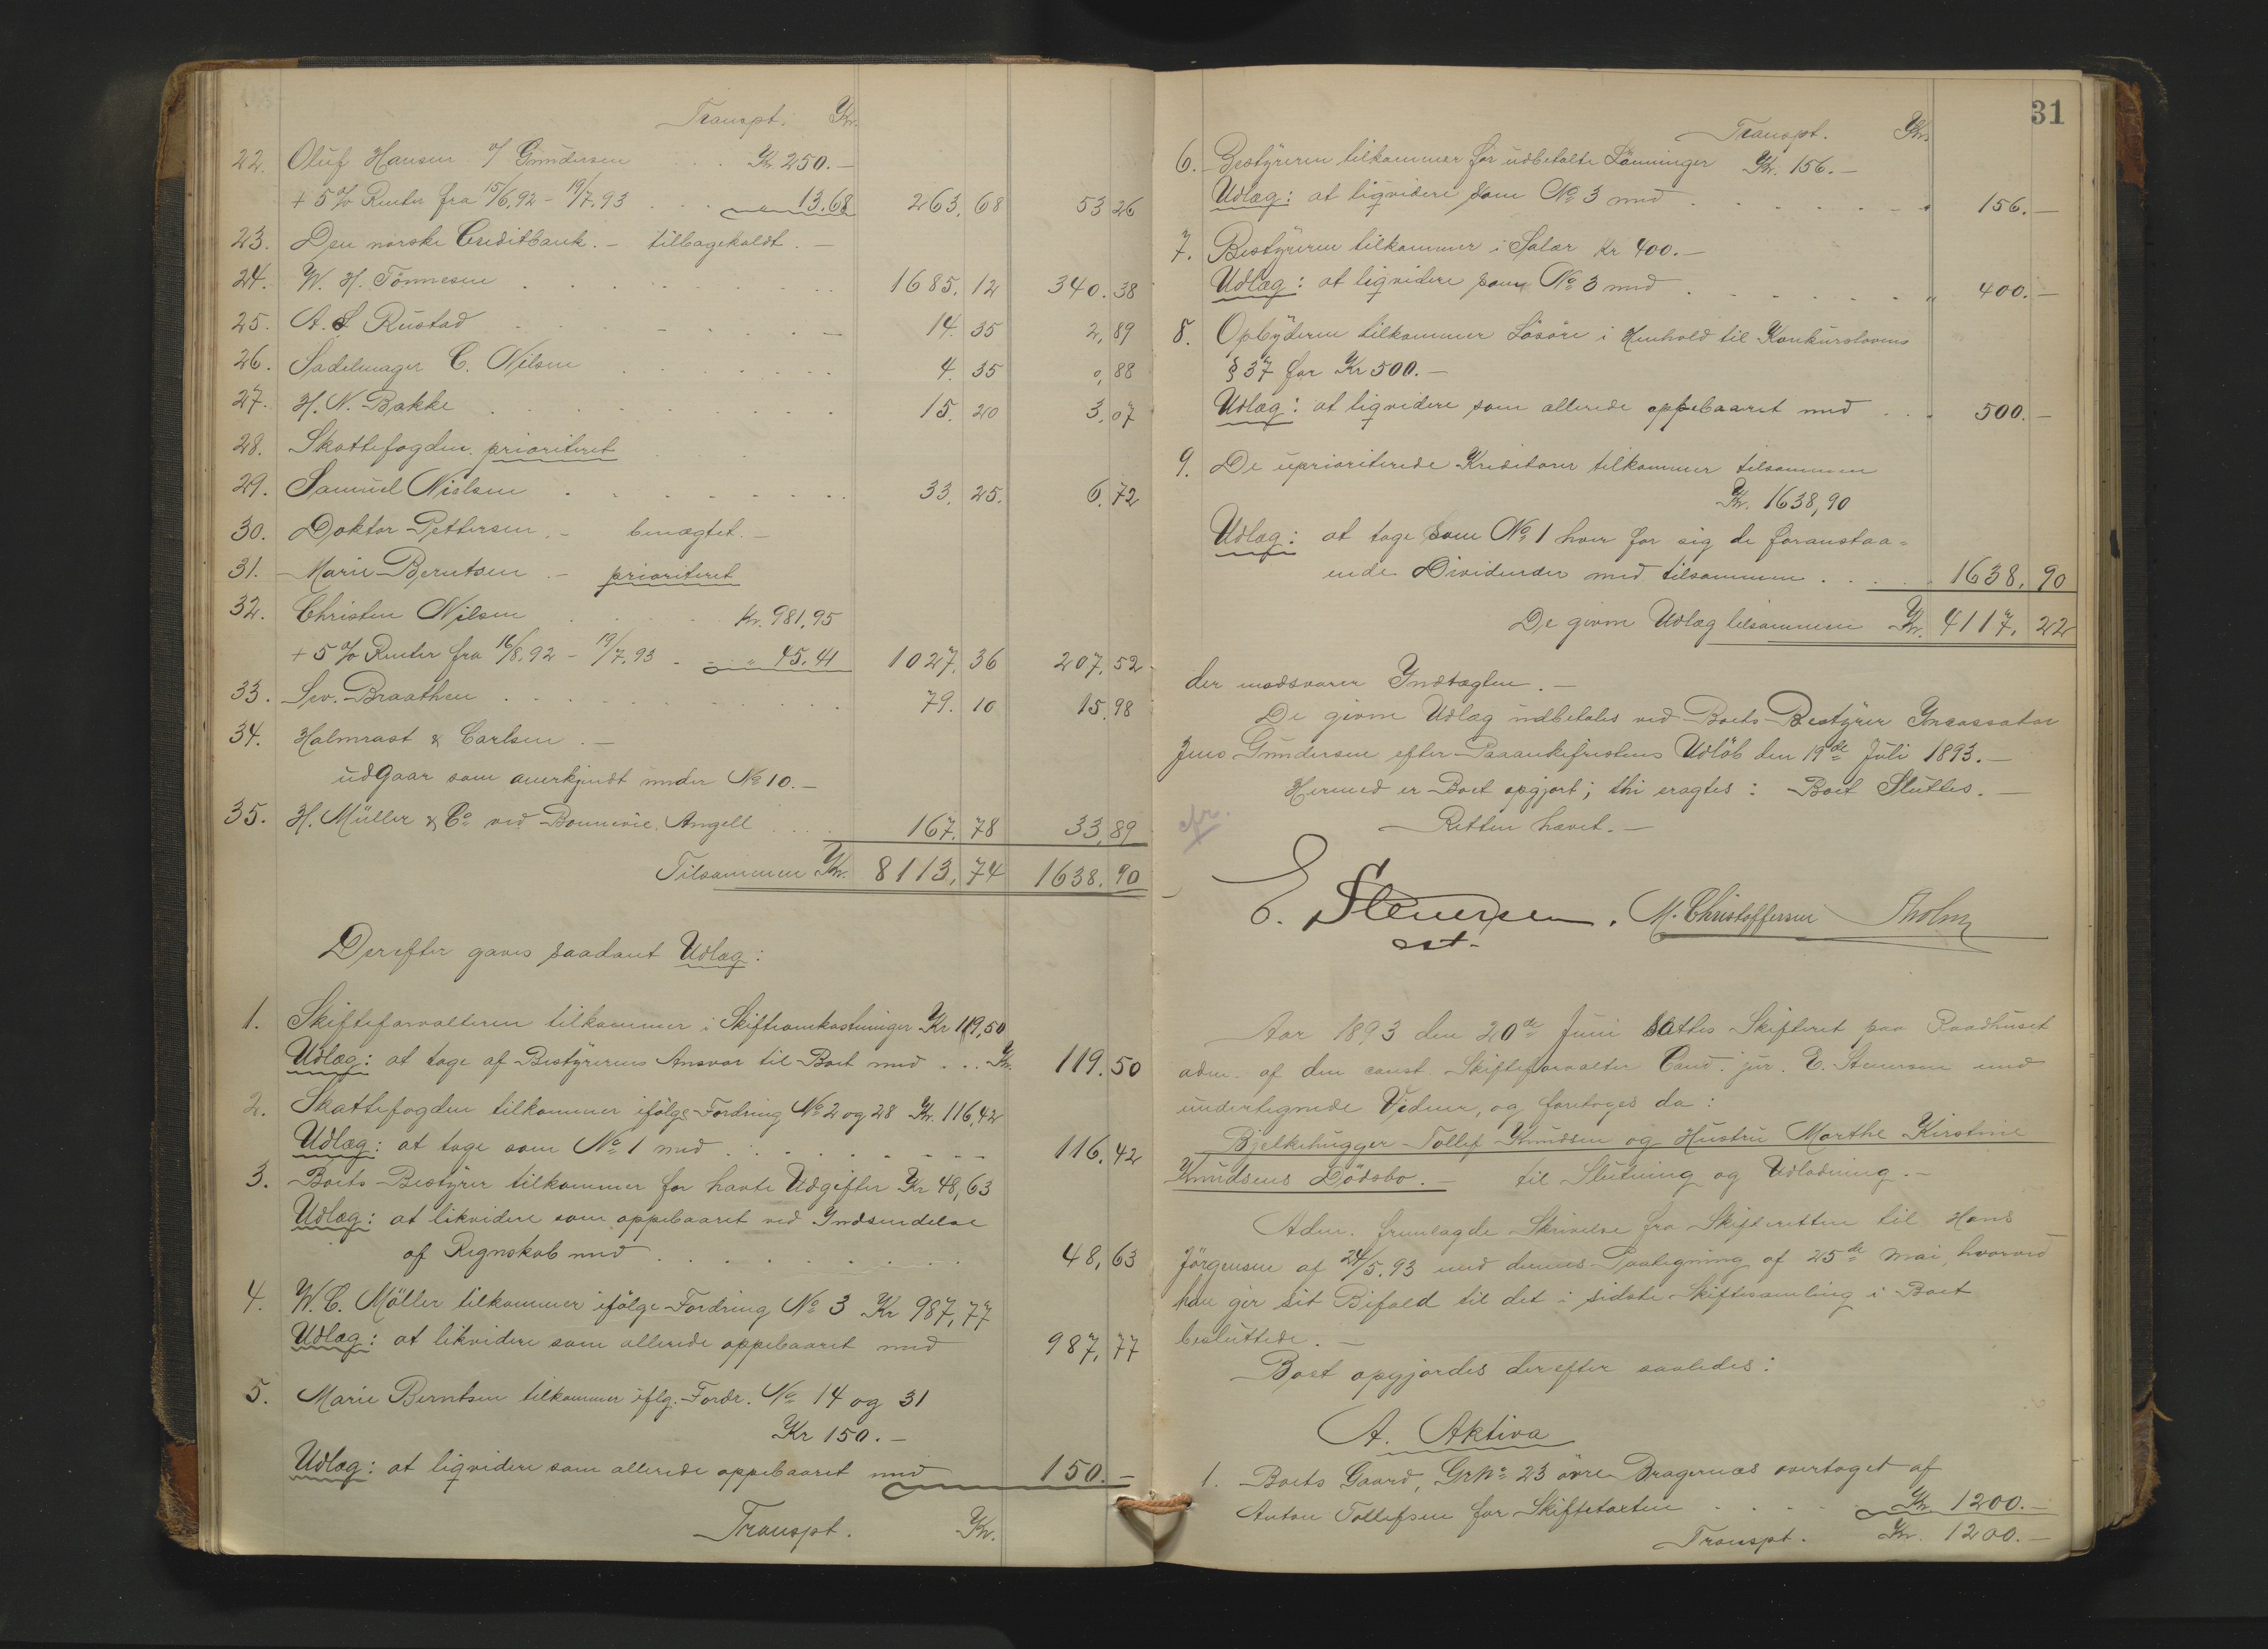 Transpt. Kr.
22. Oluf Hansen v/ Gundersen Kr. 250.-
+ 5 % Renter fra 15/6.92 - 19/7.93 13.68 263,68 53 26
23. Den norske Creditbank. - tilbageholdt. -
24. W. H. Tönnesen 1685.12 340.38
25. A. S Rustad 14.35 2,89
26. Sadelmager C. Nilsen 4.35 0,88
27. H. N. Bakke 15.20 3,07
28. Skattefogden prioriteret
29. Samuel Nielsen 33.25. 6.72
30. Doktor Pettersen. - benægtet. -
31. Marie Berntsen. - prioriteret
32. Christen Nilsen Kr. 981,95
+ 5 % Renter fra 16/8.92 - 19/7.93 - " 45.41 1027,36 207,52
33. Sev. Braathen 79.10 15,98
34. Halmrast & Carlsen. -
udgaar som anerkjendt under No 10. -
35. H. Müller & Co ved Bonnevie Angell 167.78 33,89
Tilsammen Kr. 8113,74 1638.90
Derefter gaves saadant Udlæg:
1. Skifteforvalteren tilkommer i Skifteomkostninger Kr 119,50
Udlæg: at tage af Bestyrerens Ansvar til Boet med ... Kr. 119.50
2. Skattefogden tilkommer ifölge Fordring No 2 og 28 Kr. 116,42
Udlæg: at tage som No 1 med 116.42
3. Boets Bestyrer tilkommer for havte Udgifter Kr 48,63
Udlæg: at likvidere som oppebaaret ved Indsendelse
af Regnskab med 48,63
4. W. C. Möller tilkommer ifölge Fordring No 3 Kr 987,77
Udlæg: at likvidere som allerede oppebaaret med 987,77
5. Marie Berntsen tilkommer iflg. Fordr. No 14 og 31
Kr 150.-
Udlæg: at liqvidere som allerede oppebaaret med 150.-
Transpt. Kr.
31
Transpt. Kr.
6. Bestyreren tilkommer for udbetalte Lönninger Kr. 156.-
Udlæg: at liqvidere som No 3 med 156.-
7. Bestyreren tilkommer i Salær Kr 400.-
Udlæg: at liqvidere som No 3 med " 400.-
8. Opbyderen tilkommer Lösöre i Henhold til Konkurslovens
§ 37 for Kr 500.-
Udlæg: at liqvidere som allerede oppebaaret med 500.-
9. De uprioriterede Kreditorer tilkommer tilsammen
Kr. 1638,90
Udlæg: at tage som No 1 hver for sig de foranstaa-
ende Dividender med tilsammen 1638,90
De givne Udlæg tilsammen Kr. 4117,22
der modsvarer Indtægten. -
De givne Udlæg udbetales ved Boets Bestyrer Incassator
Jens Gundersen efter Paaankefristens Udlöb den 19de Juli 1893. -
Hermed er Boet opgjort; thi eragtes: Boet Sluttes. -
Retten hævet. -
cfr.
E. Stenersen. M. Christoffersen Tholm
cst.
Aar 1893 den 20de Juni sattes Skifteret paa Raadhuset
adm. af den const. Skifteforvalter Cand. jur. E. Stenersen med
undertegnede Vidner, og foretoges da:
Bjelkehugger Tollef Knudsen og Hustru Marthe Kirstine
Knudsens Dödsbo. - til Slutning og Udlodning. -
Adm. fremlagde Skrivelse fra Skifteretten til Hans
Jörgensen af 24/5.93 med dennes Paategning af 25de Mai, hvorved
han gir sit Bifald til det i sidste Skiftesamling i Boet
besluttede. -
Boet opgjordes derefter saaledes:
A. Aktiva
1. Boets Gaard, GrNo 23 övre Bragernæs overtaget af
Anton Tollefsen for Skiftetaxten Kr. 1200.-
Transpt. Kr. 1200.-